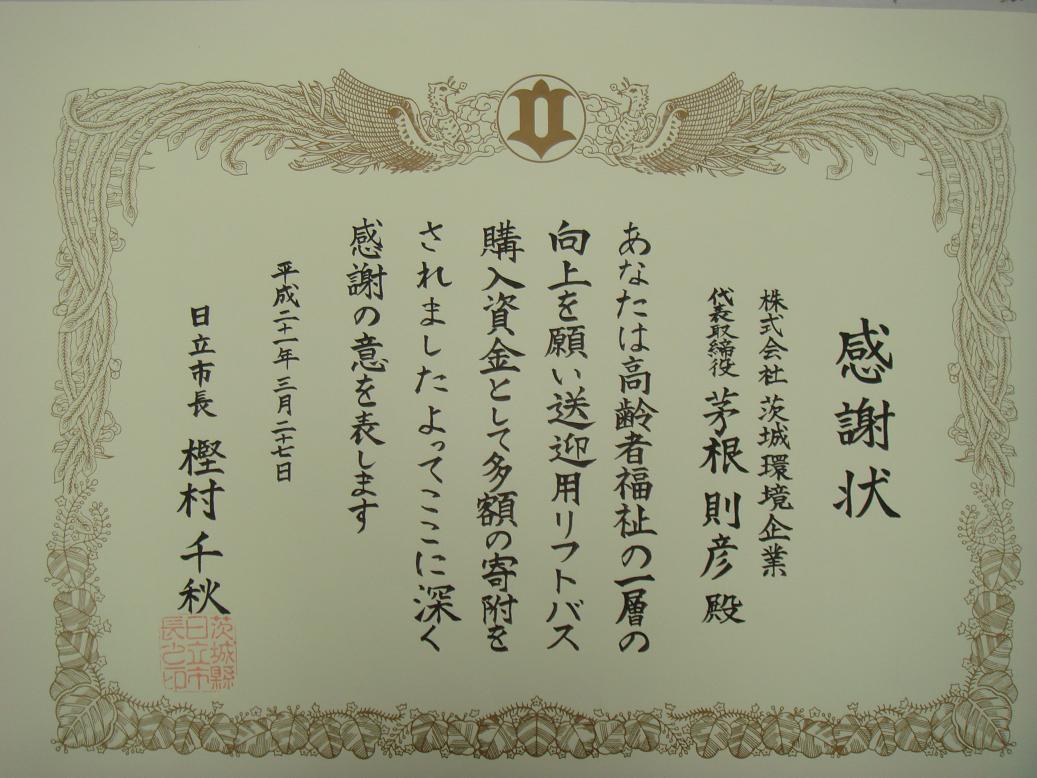 感謝状
株式会社 茨城環境企業
代表取締役 茅根 則彦 殿
あなたは高齢者福祉の一層の
向上を願い送迎用リフトバス
購入資金として多額の寄附を
されましたよってここに深く
感謝の意を表します
平成二十一年 三月 二十七日
日立市長 樫村 千秋
茨城縣
日立市
長之印